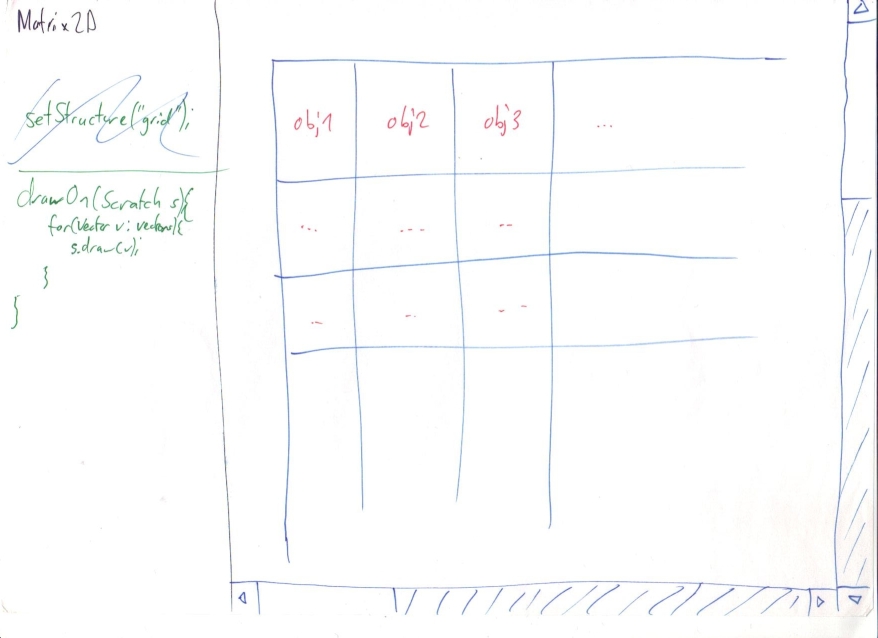 Matrix2D
setStructure("grid");
drawOn(Scratch s){
for(Vector v: vectors){
s.draw(v);
}
}
obj1 obj2 obj3 ...
... --- --
-- -- - -